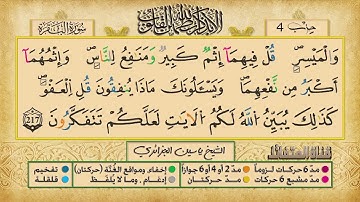 حزب 4
ألا بذكر الله تطمئن القلوب
سورة البقرة
وَالْمَيْسِرِ ۖ قُلْ فِيهِمَآ إِثْمٌ كَبِيرٌ وَمَنَٰفِعُ لِلنَّاسِ ۖ وَإِثْمُهُمَآ
أَكْبَرُ مِن نَّفْعِهِمَا ۖ وَيَسْـَٔلُونَكَ مَاذَا يُنفِقُونَ قُلِ الْعَفْوَ ۖ
كَذَٰلِكَ يُبَيِّنُ اللَّهُ لَكُمُ الْأَيَٰتِ لَعَلَّكُمْ تَتَفَكَّرُونَ 217
الشيخ ياسين الجزائري
مدّ 6 حركات لزوماً مدّ 2 أو 4 أو 6 جوازاً إخفاء، ومواقع الغُنَّة (حركتان) تفخيم
مدّ مشبع 6 حركات مدّ حركتان إدغام، وما لا يُلفَظ قلقلة